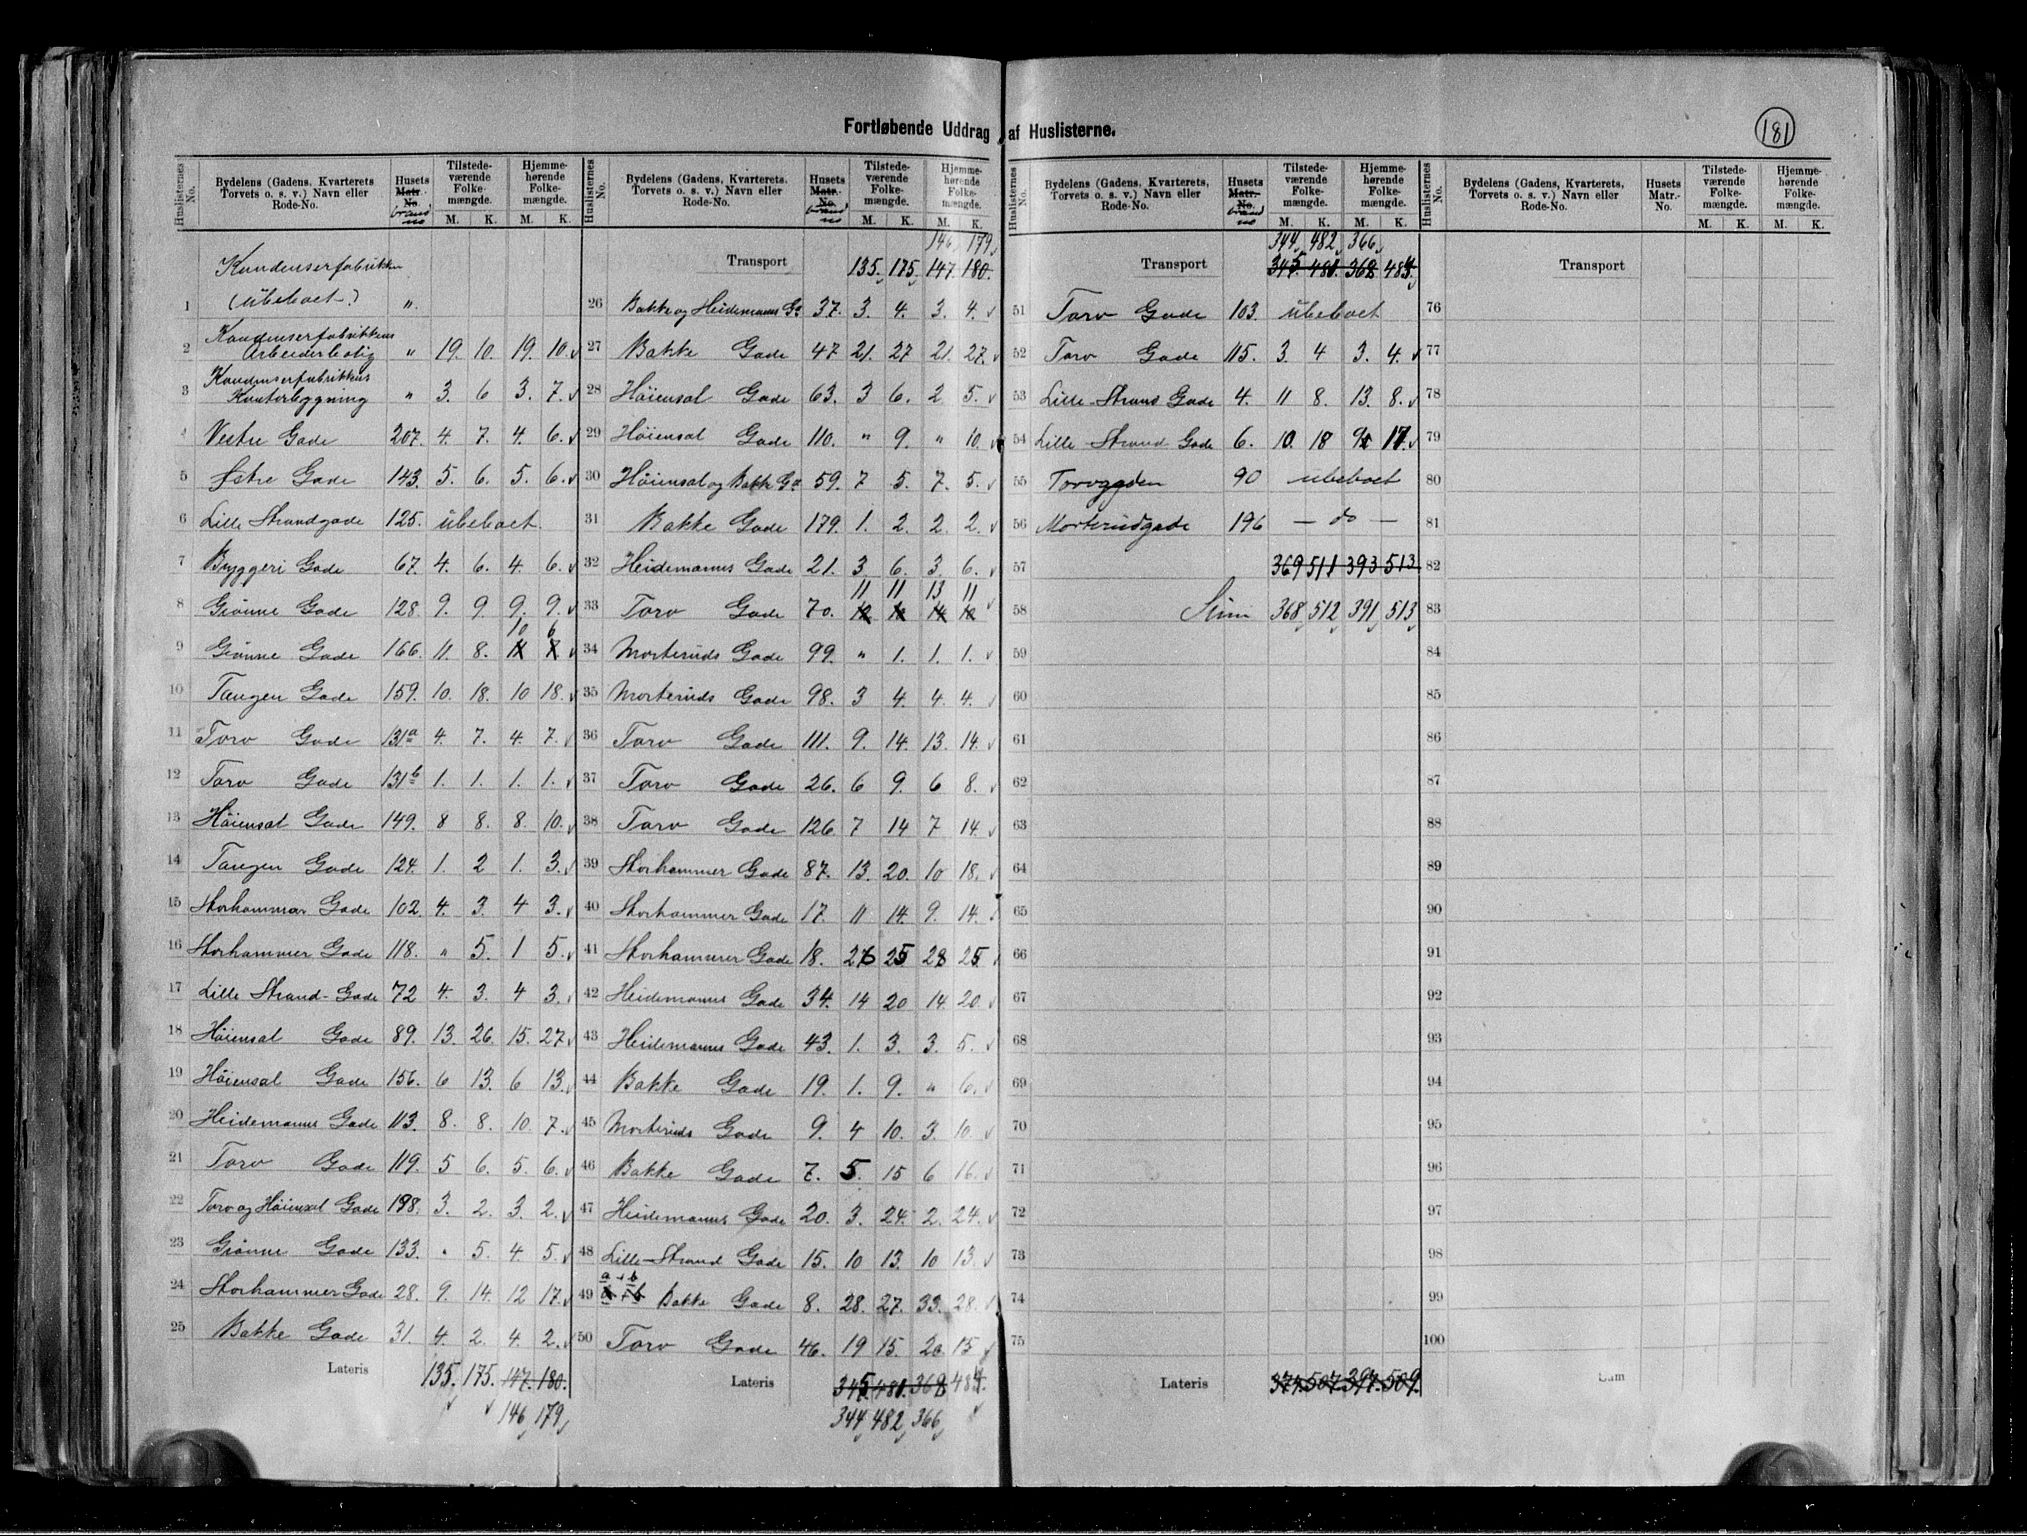 Fortløbende Uddrag af Huslisterne.
181
Huslisternes No. | Bydelens (Gadens, Kvarterets, Torvets o. s. v.) Navn eller Rode-No. | Husets Matr.-No. brand no | Tilstedeværende Folkemængde. M. K. | Hjemmehørende Folkemængde. M. K.
1 Kondenserfabrikken (ubeboet) "
2 Kondenserfabrikkens Arbeiderbolig " 19. 10. 19. 10.
3 Kondenserfabrikkens Kontorbygning " 3. 6 3. 7.
4 Vestre Gade 207. 4. 7. 4. 6.
5 Østre Gade 143. 5. 6. 5. 6.
6 Lille Strandgade 125. ubeboet.
7 Bryggeri Gade 67. 4. 6. 4. 6.
8 Grønne Gade 128. 9. 9 9. 9.
9 Grønne Gade 166. 11. 8. 10 6
10 Tangen Gade 159. 10. 18. 10 18.
11 Torv Gade 131a 4. 7. 4. 7.
12 Torv Gade 131b 1. 1. 1. 1.
13 Høiensal Gade 149. 8 8. 8. 10.
14 Tangen Gade 124. 1. 2 1. 3.
15 Storhammer Gade 102. 4. 3. 4 3.
16 Storhammer Gade 118. " 5. 1 5.
17 Lille Strand-Gade 72 4. 3. 4 3.
18 Høiensal Gade 89. 13. 26. 15. 27.
19 Høiensal Gade 156. 6 13. 6 13.
20 Heidemanns Gade 113. 8. 8. 10. 7.
21 Torv Gade 119. 5 6. 5. 6.
22 Torv og Høiensal Gade 198. 3. 2. 3. 2.
23 Grønne Gade 133. " 5. 4. 5.
24 Storhammer Gade 28. 9. 14. 12 17.
25 Bakke Gade 31. 4. 2. 4. 2.
Lateris 135. 175. 147. 180.
146 179
Huslisternes No. | Bydelens (Gadens, Kvarterets, Torvets o. s. v.) Navn eller Rode-No. | Husets Matr.-No. brand no | Tilstedeværende Folkemængde. M. K. | Hjemmehørende Folkemængde. M. K.
146 179
Transport 135. 175. 147. 180.
26 Bakke og Heidemanns G. 37. 3. 4. 3. 4.
27 Bakke Gade 47 21. 27 21. 27.
28 Høiensal Gade 63. 3 6. 2 5.
29 Høiensal Gade 110. " 9. " 10.
30 Høiensal og Bakke G. 59. 7 5. 7. 5.
31 Bakke Gade 179. 1. 2. 2. 2.
32 Heidemanns Gade 21. 3 6. 3. 6.
11 11 13 11
33 Torv Gade 70.
34 Morteruds Gade 99. " 1. 1. 1.
35 Morteruds Gade 98. 3 4. 4 4.
36 Torv Gade 111. 9. 14. 13. 14.
37 Torv Gade 26. 6 9. 6 8.
38 Torv Gade 126. 7 14 7 14.
39 Storhammer Gade 87. 13. 20. 10 18.
40 Storhammer Gade 17. 11 14. 9. 14.
41 Storhammer Gade 18. 26 25 28 25
42 Heidemanns Gade 34. 14 20 14. 20.
43 Heidemanns Gade 43. 1. 3. 3. 5.
44 Bakke Gade 19. 1. 9. " 6.
45 Morteruds Gade 9. 4 10. 3. 10.
46 Bakke Gade 7. 5. 15 6 16.
47 Heidemanns Gade 20. 3. 24. 2. 24.
48 Lille-Strand Gade 15. 10 13. 10 13.
a + b
49 Bakke Gade 8. 28. 27. 33. 28.
50 Torv Gade 46. 19 15. 20. 15
Lateris 345 481. 368 484.
344 482 366
Huslisternes No. | Bydelens (Gadens, Kvarterets, Torvets o. s. v.) Navn eller Rode-No. | Husets Matr.-No. brand no | Tilstedeværende Folkemængde. M. K. | Hjemmehørende Folkemængde. M. K.
344 482 366
Transport 345 481. 368 484
51 Torv Gade 103. ubeboet
52 Torv Gade 115. 3. 4 3. 4.
53 Lille-Strans Gade 4. 11 8. 13. 8.
54 Lille-Strand Gade 6. 10. 18 9 17
55 Torvggden 90 ubeboet
56 Morterudgade 196 — do —
57 369 511 393 513
58 Sum 368 512 391 513
59
60
61
62
63
64
65
66
67
68
69
70
71
72
73
74
75
Lateris 374. 507. 397. 509.
Huslisternes No. | Bydelens (Gadens, Kvarterets, Torvets o. s. v.) Navn eller Rode-No. | Husets Matr.-No. | Tilstedeværende Folkemængde. M. K. | Hjemmehørende Folkemængde. M. K.
Transport
76
77
78
79
80
81
82
83
84
85
86
87
88
89
90
91
92
93
94
95
96
97
98
99
100
Sum